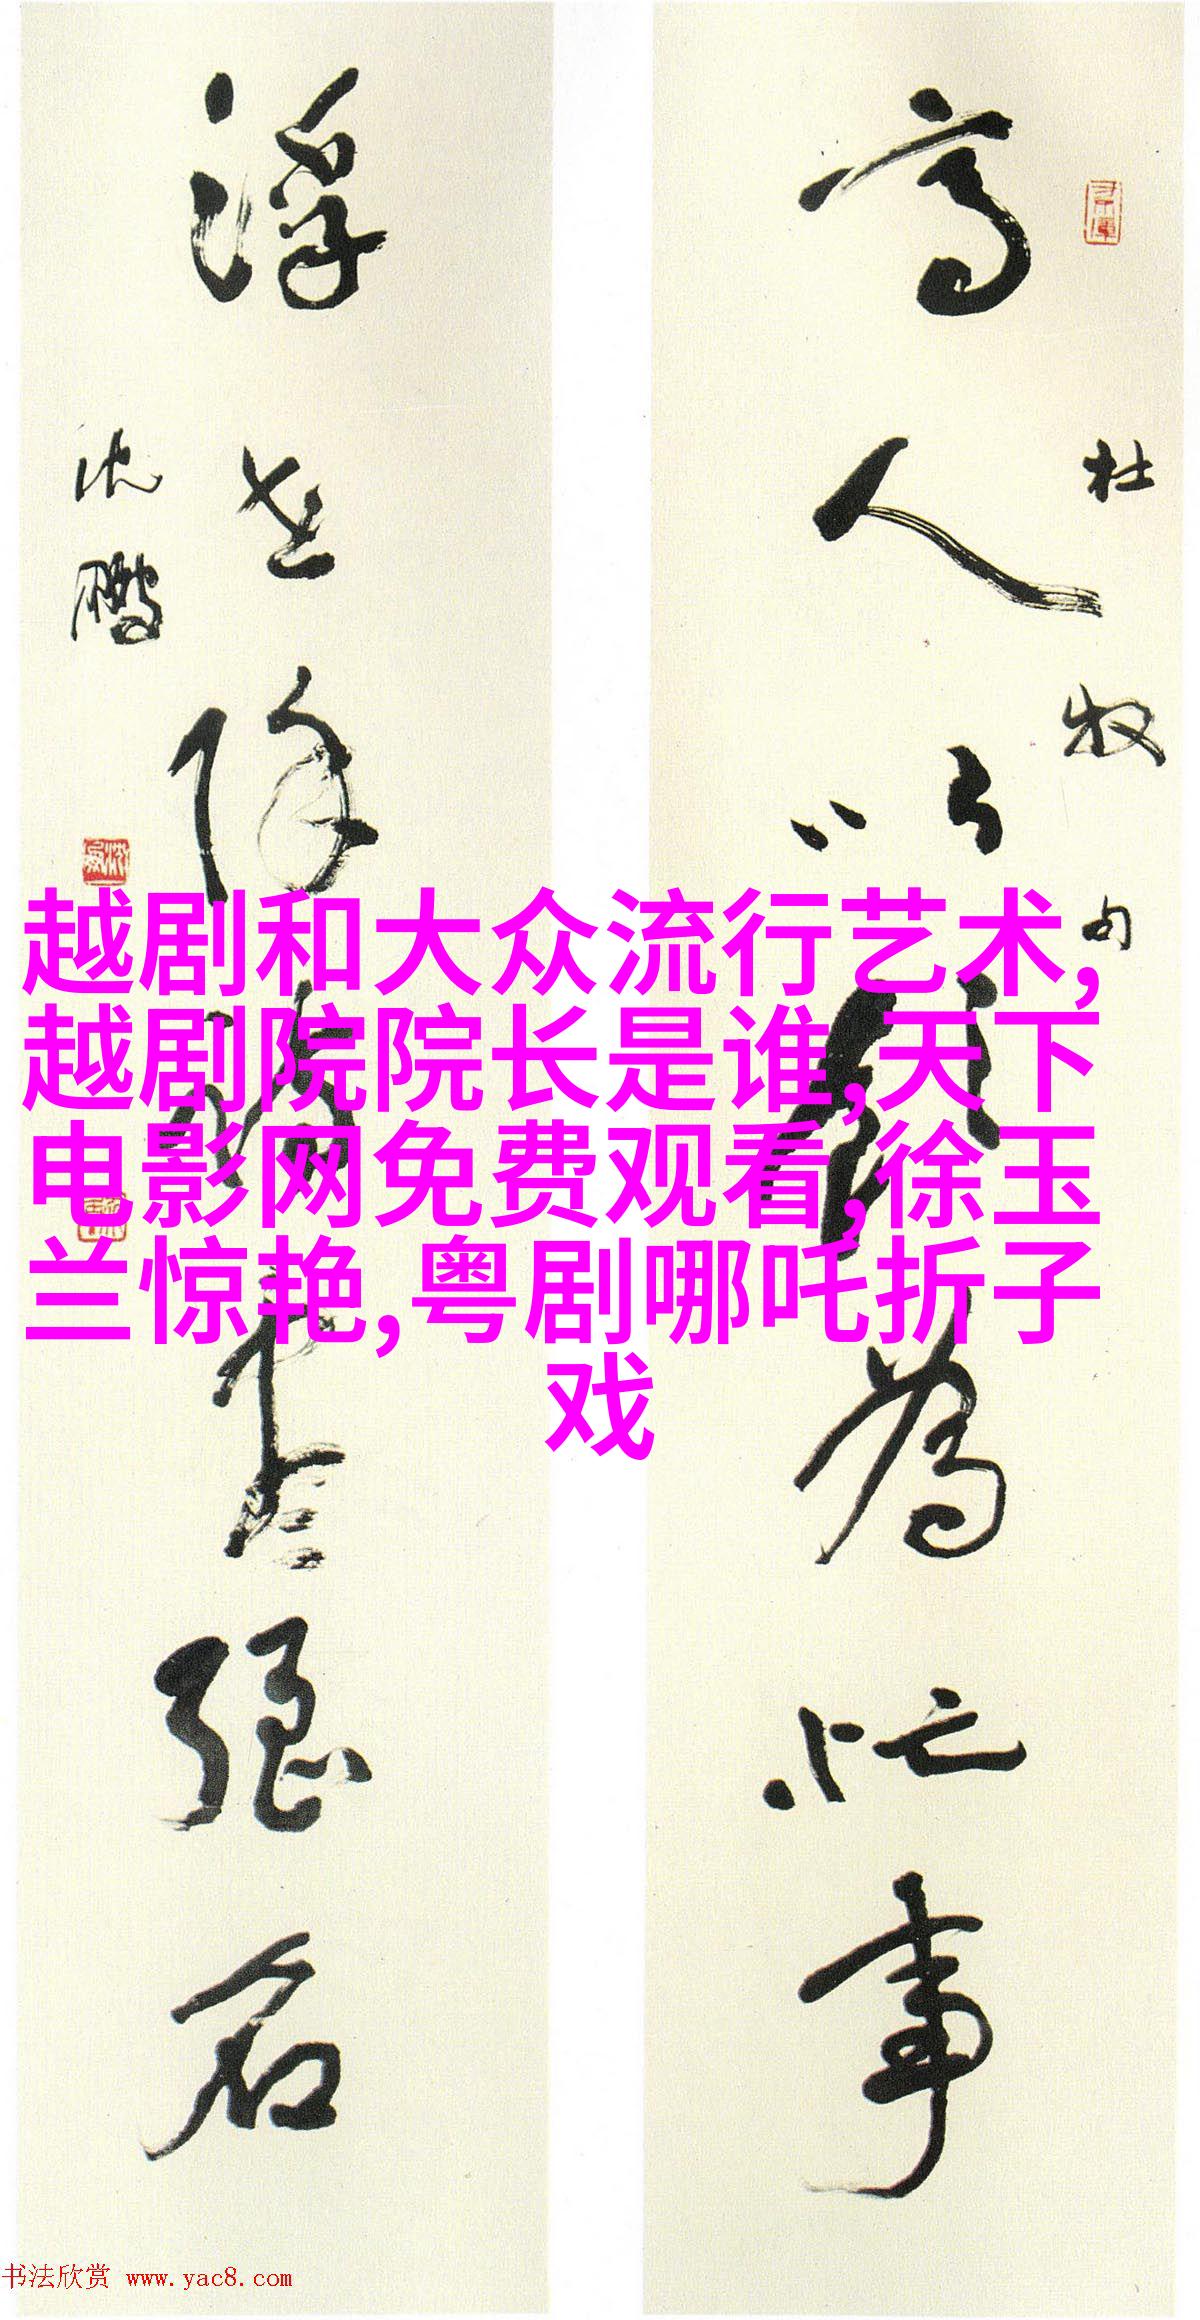 高人以飲為忙事
杜牧句
浮世除詩盡強名
沈鵬
越剧和大众流行艺术,
越剧院院长是谁,天下
电影网免费观看,徐玉
兰惊艳,粤剧哪吒折子
戏
书法欣赏 www.yac8.com